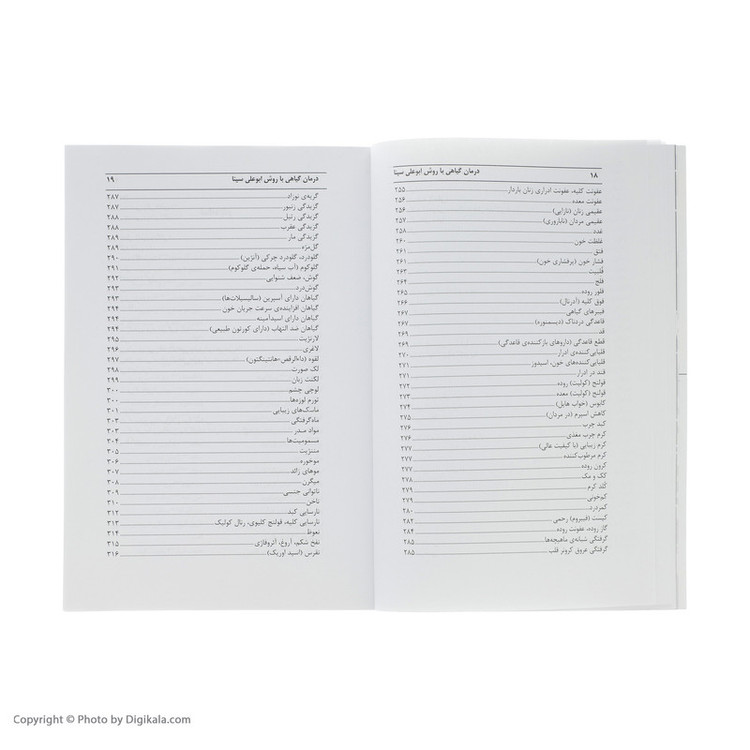 ۱۸ درمان گیاهی با روش ابوعلی سینا
عفونت کلیه، عفونت ادراری زنان باردار ۲۵۵
عفونت معده ۲۵۶
عقیمی زنان (نازایی) ۲۵۶
عقیمی مردان (ناباروری) ۲۵۷
غدد ۲۵۸
غلظت خون ۲۶۰
فتق ۲۶۱
فشار خون (پرفشاری خون) ۲۶۱
فلبیت ۲۶۳
فلج ۲۶۴
فلور روده ۲۶۵
فوق کلیه (آدرنال) ۲۶۶
فیبرهای گیاهی ۲۶۷
قاعدگی دردناک (دیسمنوره) ۲۶۷
قد ۲۶۹
قطع قاعدگی (داروهای بازکننده‌ی قاعدگی) ۲۶۹
قلیایی‌کننده‌ی ادرار ۲۷۰
قلیایی‌کننده‌های خون، اسیدوز ۲۷۱
قند در ادرار ۲۷۱
قولنج (کولیت) روده ۲۷۲
قولنج (کولیت) معده ۲۷۳
کابوس (خواب هایل) ۲۷۴
کاهش اسپرم (در مردان) ۲۷۵
کبد چرب ۲۷۶
کرم چرب مغذی ۲۷۶
کرم زیبایی (با کیفیت عالی) ۲۷۷
کرم مرطوب‌کننده ۲۷۷
کرون روده ۲۷۷
کک و مک ۲۷۸
کلد کرم ۲۷۹
کم‌خونی ۲۷۹
کمردرد ۲۸۰
کیست (فیبروم) رحمی ۲۸۲
گاز روده، عفونت روده ۲۸۴
گرفتگی شبانه‌ی ماهیچه‌ها ۲۸۵
گرفتگی عروق کرونر قلب ۲۸۵
درمان گیاهی با روش ابوعلی سینا ۱۹
گریه‌ی نوزاد ۲۸۷
گزیدگی زنبور ۲۸۷
گزیدگی رتیل ۲۸۸
گزیدگی عقرب ۲۸۸
گزیدگی مار ۲۸۹
گل‌مژه ۲۸۹
گلودرد، گلودرد چرکی (آنژین) ۲۹۰
گلوکوم (آب سیاه، حمله‌ی گلوکوم) ۲۹۱
گوش، ضعف شنوایی ۲۹۲
گوش‌درد ۲۹۳
گیاهان دارای آسپرین (سالیسیلات‌ها) ۲۹۳
گیاهان افزاینده‌ی سرعت جریان خون ۲۹۴
گیاهان دارای اسیدآمینه ۲۹۴
گیاهان ضد التهاب (دارای کورتون طبیعی) ۲۹۴
لارنژیت ۲۹۵
لاغری ۲۹۶
لقوه (داءالرقص=هانتینگتون) ۲۹۷
لک صورت ۲۹۸
لکنت زبان ۲۹۹
لوچی چشم ۳۰۰
تورم لوزه‌ها ۳۰۰
ماسک‌های زیبایی ۳۰۱
ماه‌گرفتگی ۳۰۳
مواد مخدر ۳۰۳
مسمومیت‌ها ۳۰۴
مننژیت ۳۰۵
موخوره ۳۰۶
موهای زائد ۳۰۷
میگرن ۳۰۸
ناتوانی جنسی ۳۰۹
ناخن ۳۱۰
نارسایی کبد ۳۱۲
نارسایی کلیه، قولنج کلیوی، رنال کولیک ۳۱۳
نعوظ ۳۱۴
نفخ شکم، آروغ، آئروفاژی ۳۱۵
نقرس (اسید اوریک) ۳۱۶
Copyright © Photo by Digikala.com